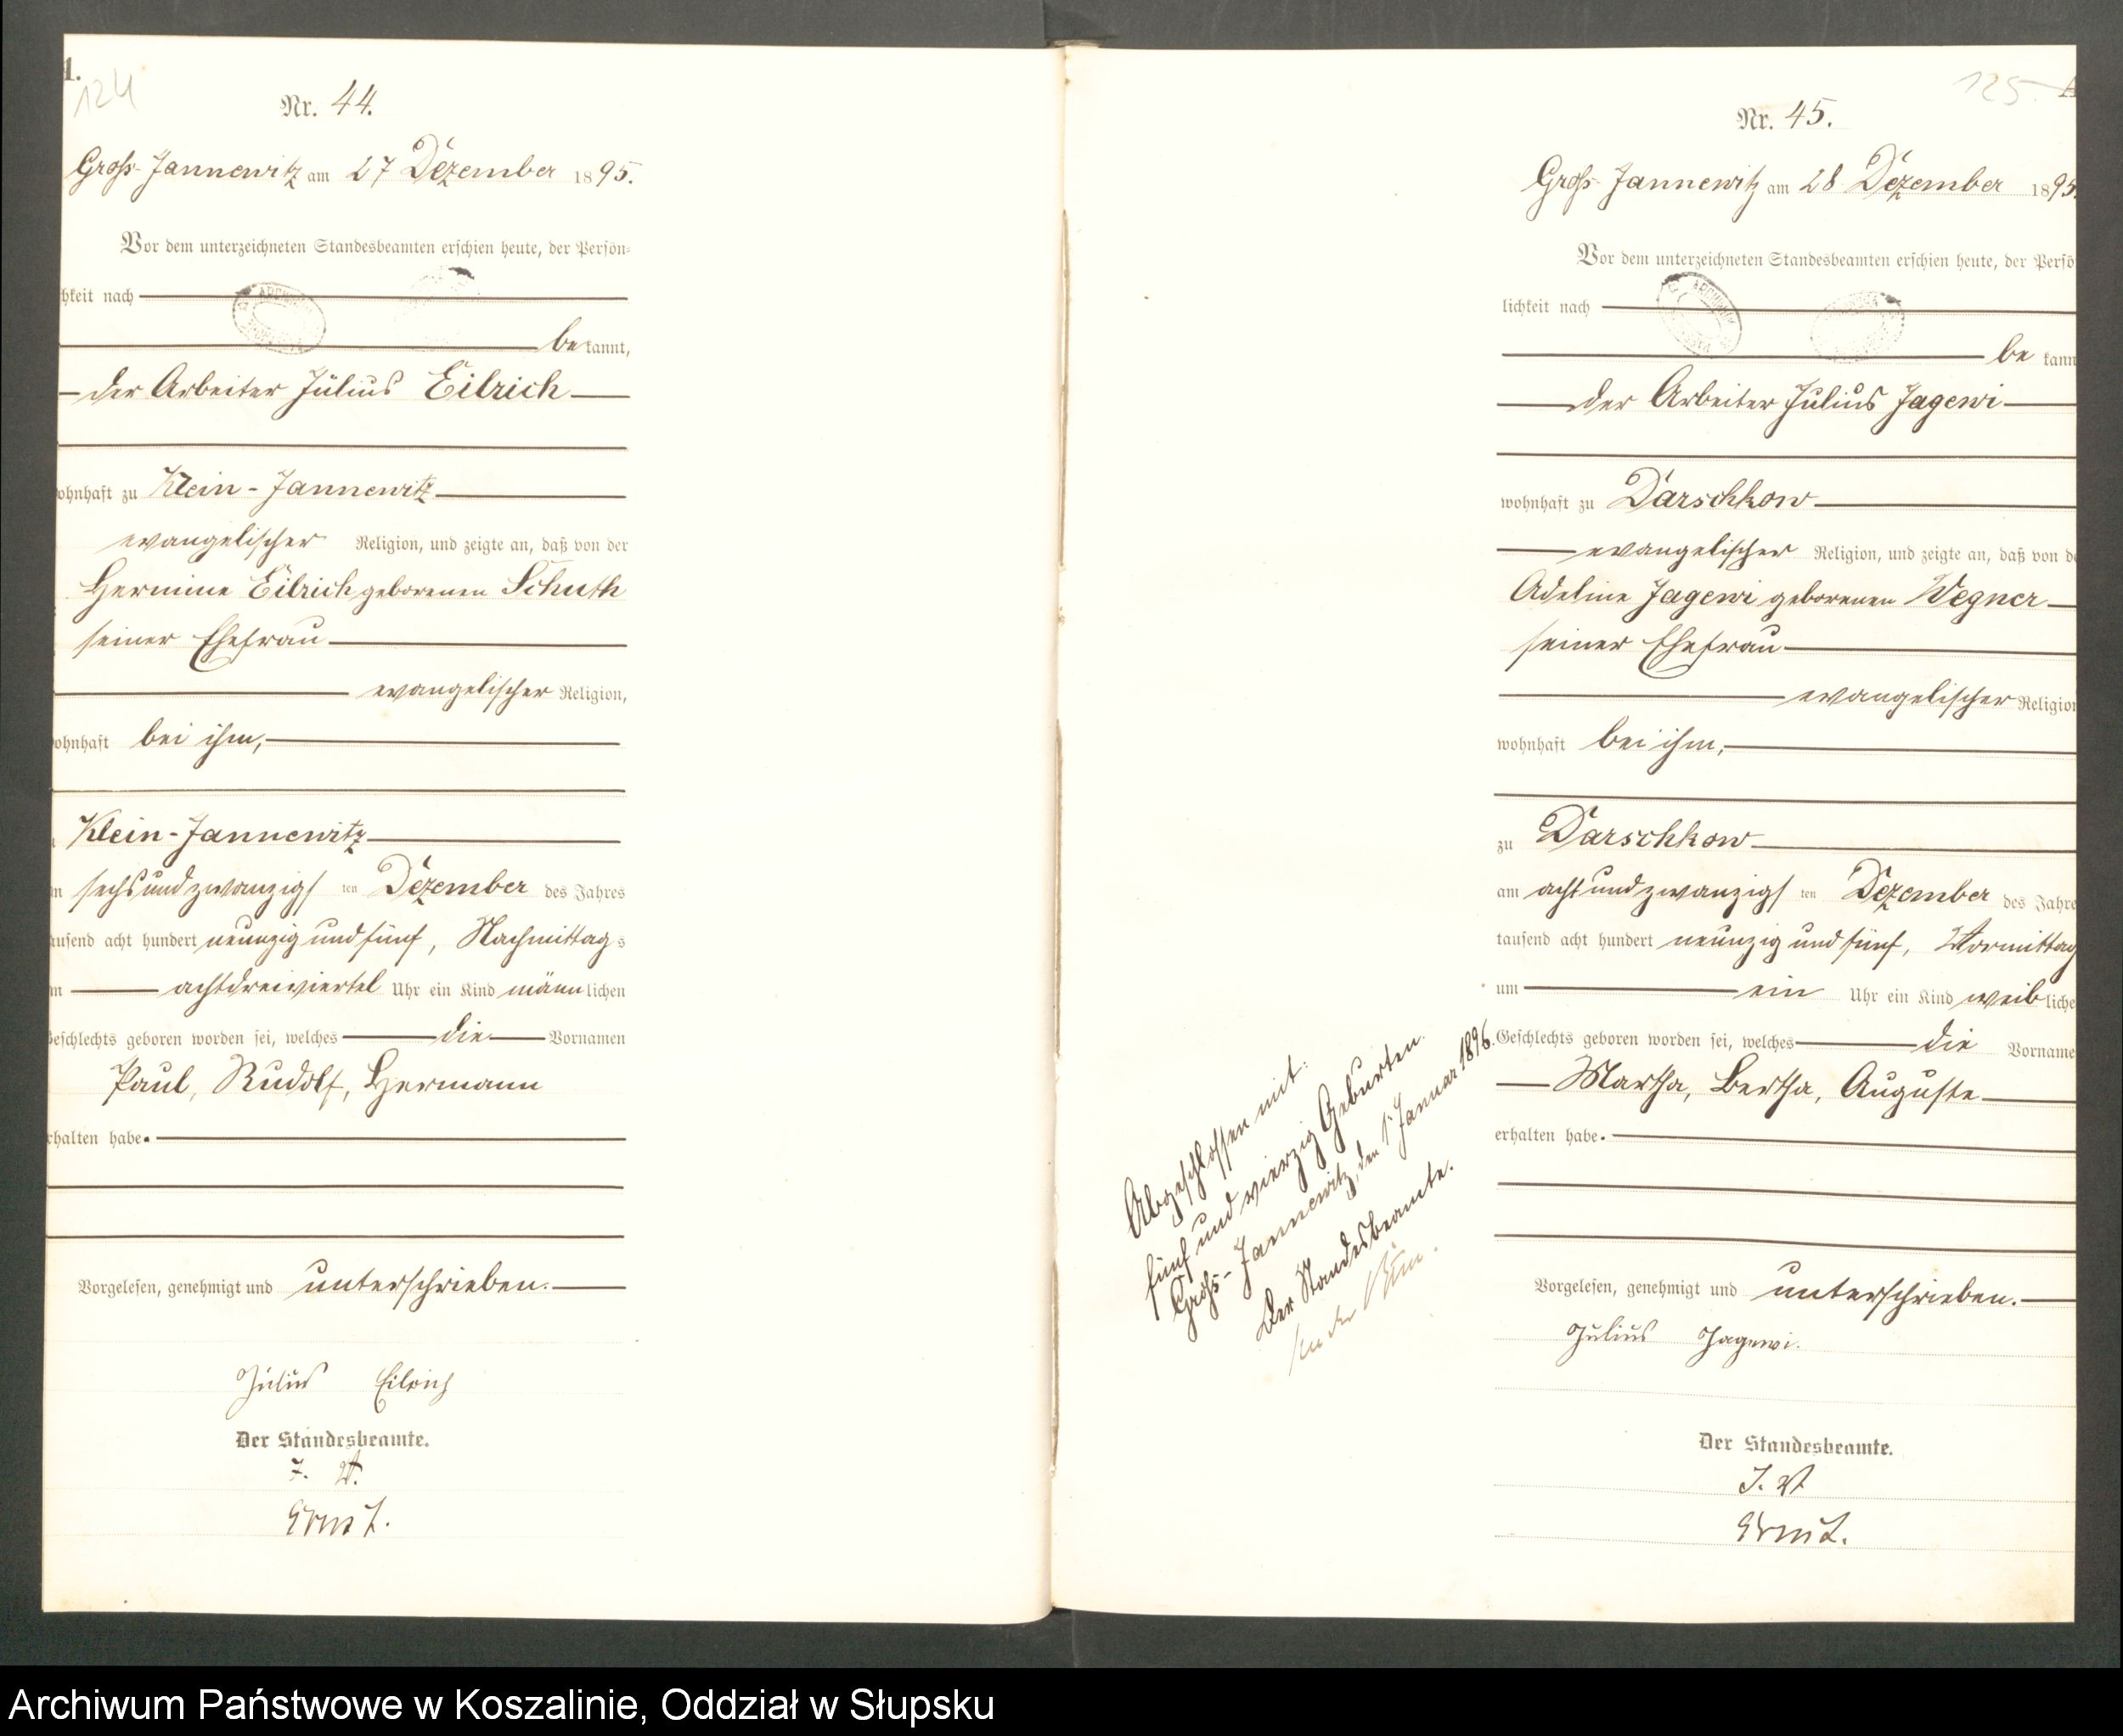 124
Nr. 44.
Groß-Jannewitz am 27 Dezember 1895.
Vor dem unterzeichneten Standesbeamten erschien heute, der Persön-
hkeit nach
bekannt,
der Arbeiter Julius Eilrich
ohnhaft zu Klein-Jannewitz
evangelischer Religion, und zeigte an, daß von der
Hermine Eilrich geborenen Schuth
seiner Ehefrau
evangelischer Religion,
ohnhaft bei ihm,
Klein-Jannewitz
sechsundzwanzigsten Dezember des Jahres
ausend acht hundert neunzig und fünf, Nachmittags
achtdreiviertel Uhr ein Kind männlichen
Geschlechts geboren worden sei, welches die Vornamen
Paul, Rudolf, Hermann
rhalten habe.
Vorgelesen, genehmigt und unterschrieben.
Julius Eilrich
Der Standesbeamte.
J. V.
125.
Nr. 45.
Groß-Jannewitz am 28 Dezember 1895.
Vor dem unterzeichneten Standesbeamten erschien heute, der Persö
lichkeit nach
bekann
der Arbeiter Julius Jagewi
wohnhaft zu Darschkow
evangelischer Religion, und zeigte an, daß von de
Adeline Jagewi geborenen Wegner
seiner Ehefrau
evangelischer Religion
wohnhaft bei ihm,
zu Darschkow
am achtundzwanzigsten Dezember des Jahre
tausend acht hundert neunzig und fünf, Vormittag
um ein Uhr ein Kind weibliche
Geschlechts geboren worden sei, welches die Vorname
Martha, Bertha, Auguste
erhalten habe.
Vorgelesen, genehmigt und unterschrieben.
Julius Jagewi.
Der Standesbeamte.
J. V
Abgeschlossen mit:
fünf und vierzig Geburten.
Groß-Jannewitz, den 1. Januar 1896.
Der Standesbeamte.
Archiwum Państwowe w Koszalinie, Oddział w Słupsku